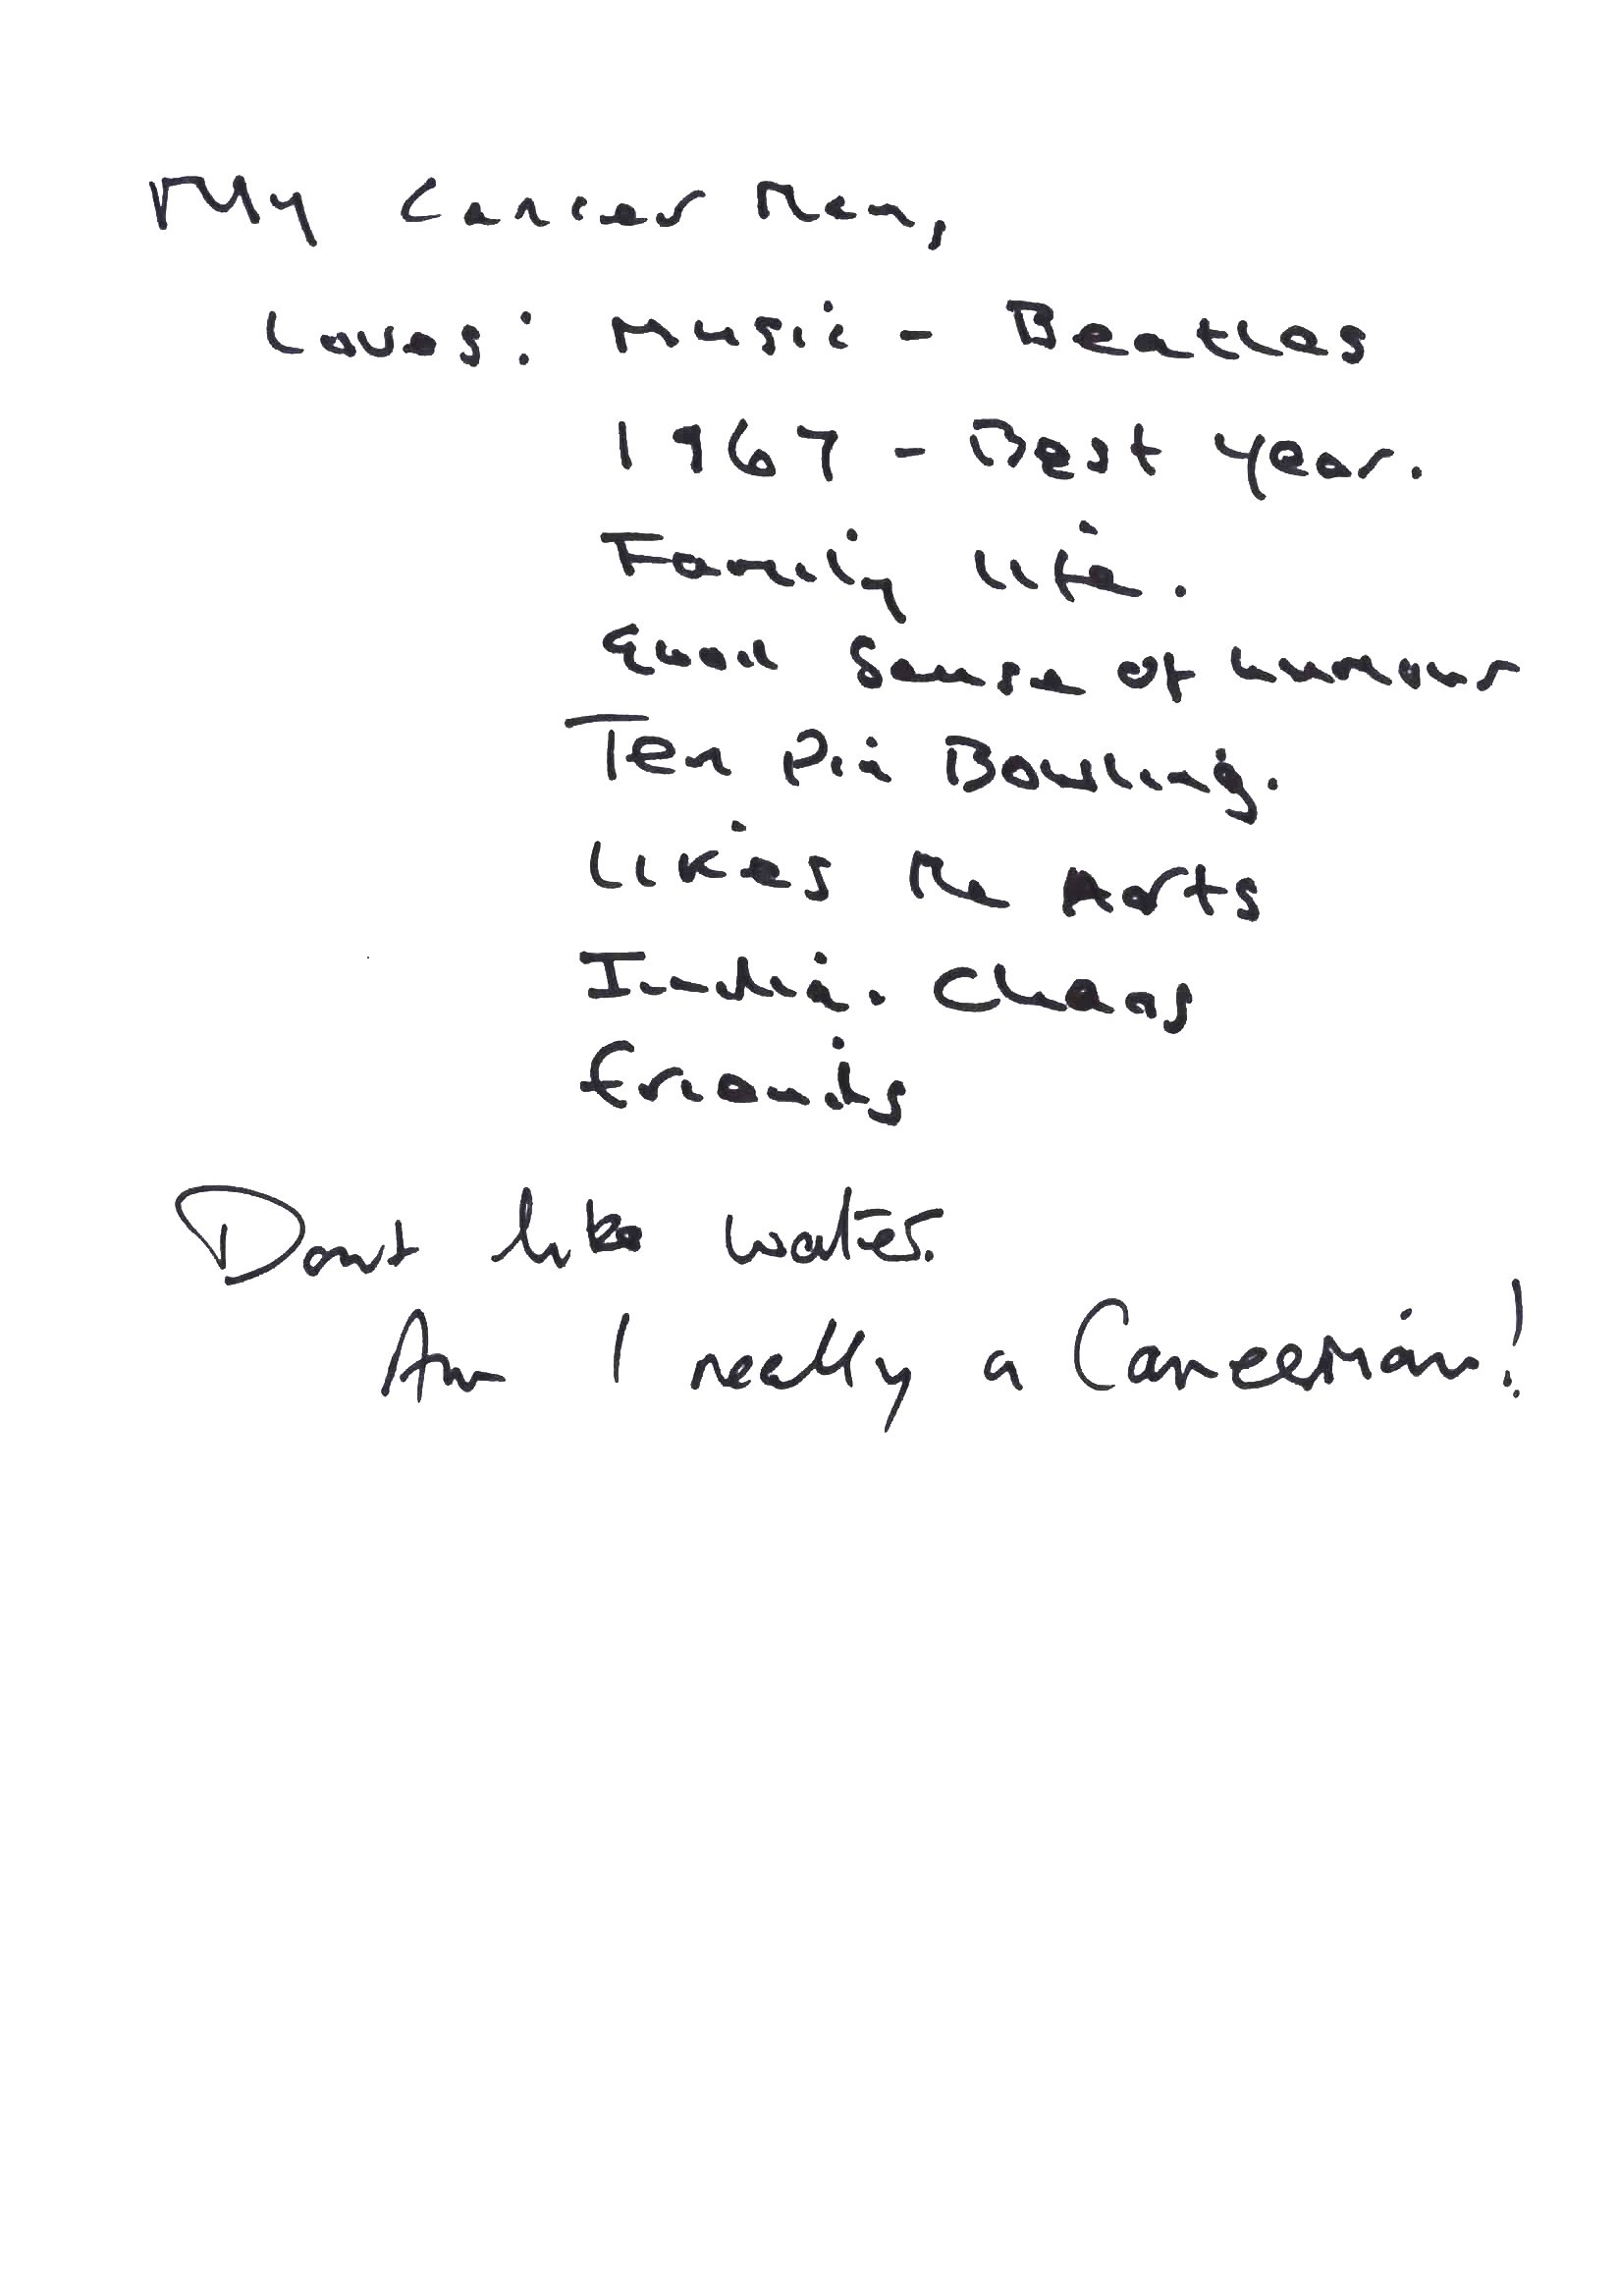 My Cancer Man,
Loves: Music - Beatles
1967 - Best year.
Family life.
Good sense of humour
Ten Pin Bowling.
Likes the Arts
India. Chaos
friends
Dont like water.
Am I really a Cancerian!